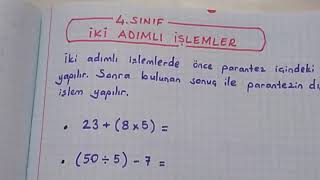 4. SINIF
İKİ ADIMLI İŞLEMLER
İki adımlı işlemlerde önce parantez içindeki
yapılır. Sonra bulunan sonuç ile parantezin
işlem yapılır.
• 23 + (8 x 5) =
• (50 ÷ 5) - 7 =